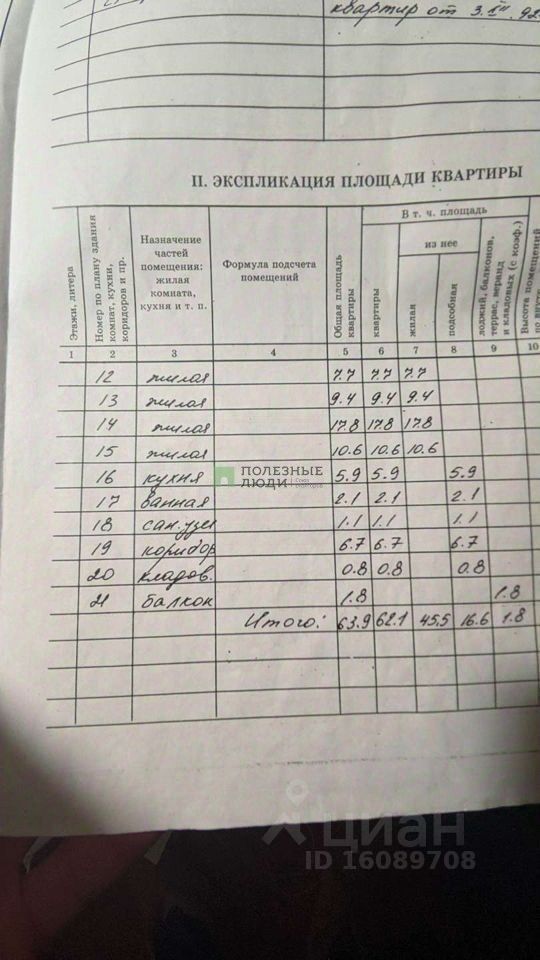 квартир от 3.III.92
II. ЭКСПЛИКАЦИЯ ПЛОЩАДИ КВАРТИРЫ
Этажи, литера
Номер по плану здания комнат, кухни, коридоров и пр.
Назначение частей помещения: жилая комната, кухня и т. п.
Формула подсчета помещений
Общая площадь квартиры
В т. ч. площадь
квартиры
из нее
жилая
подсобная
лоджий, балконов, террас, веранд и кладовых (с коэф.)
Высота помещений
1 2 3 4 5 6 7 8 9 10
12 жилая 7.7 7.7 7.7
13 жилая 9.4 9.4 9.4
14 жилая 17.8 17.8 17.8
15 жилая 10.6 10.6 10.6
16 кухня 5.9 5.9 5.9
17 ванная 2.1 2.1 2.1
18 сан.узел 1.1 1.1 1.1
19 коридор 6.7 6.7 6.7
20 кладов. 0.8 0.8 0.8
21 балкон 1.8 1.8
Итого: 63.9 62.1 45.5 16.6 1.8
ПОЛЕЗНЫЕ
ЛЮДИ
циан
ID 16089708